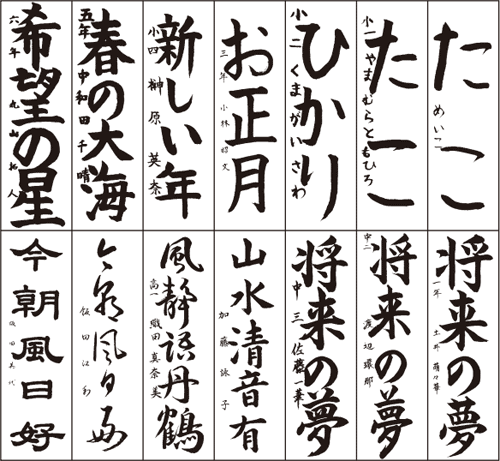 たこ
めいこ
たこ
小一 やまむらともひろ
ひかり
小二 くまがいさわ
お正月
三年 小林昭文
新しい年
小四 榊原英奈
春の大海
五年 中和田千晴
希望の星
六年 丸山拓人
将来の夢
一年 土井萌々華
将来の夢
中二 渡辺環那
将来の夢
中三 佐藤一華
山水清音有
加藤詠子
風静語丹鶴
高一 織田真奈美
今朝風日好
今朝風日好